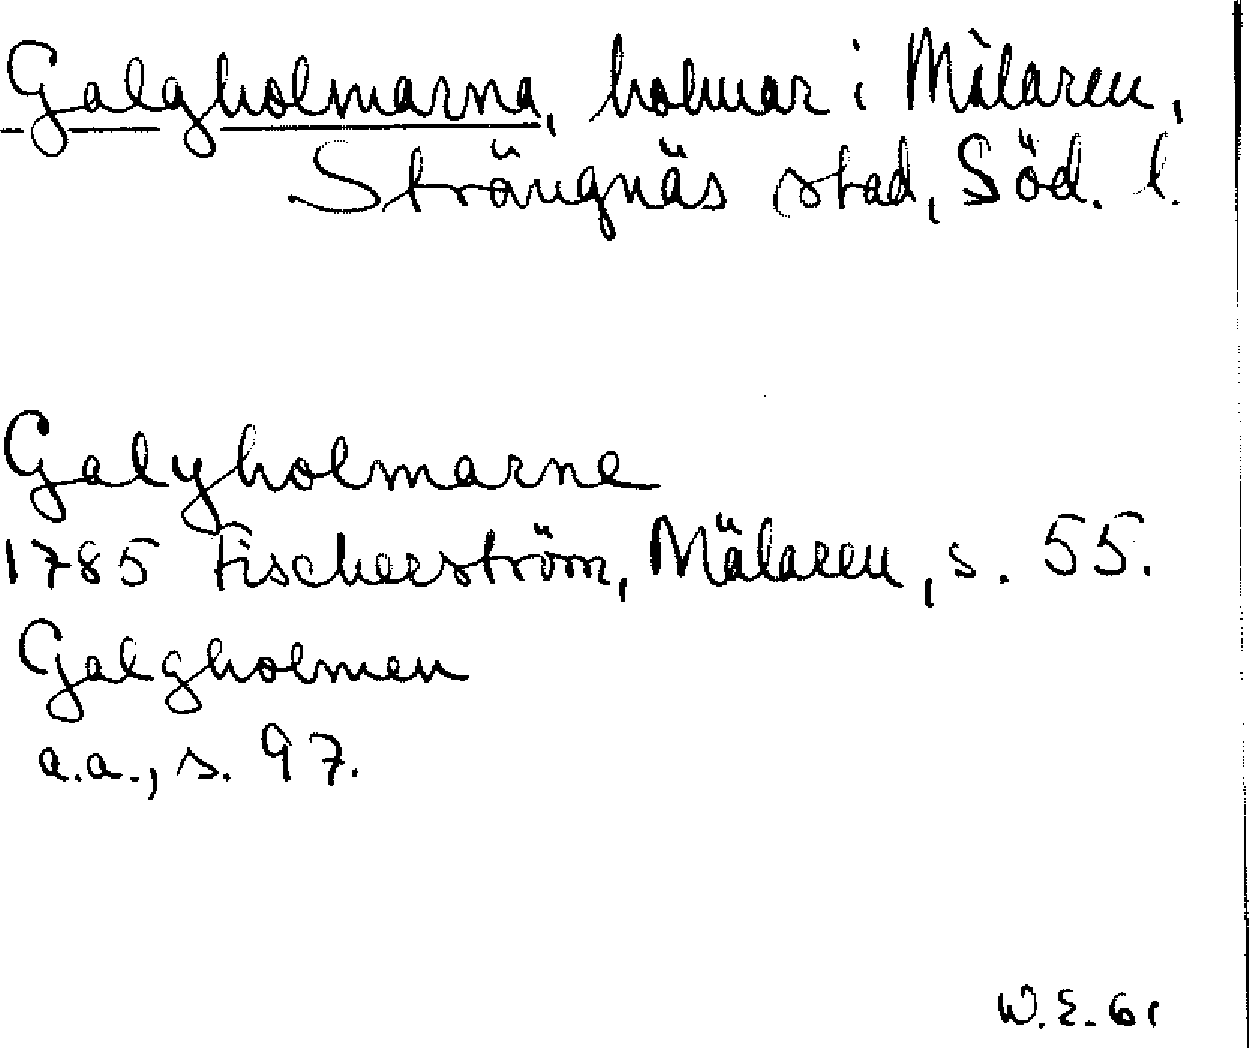 Galgholmarna, holmar i Mälaren,
Strängnäs stad, Söd. l.
Galgholmarne
1785 Fischerström, Mälaren, s. 55.
Galgholmen
a.a., s. 97.
W.E. 61